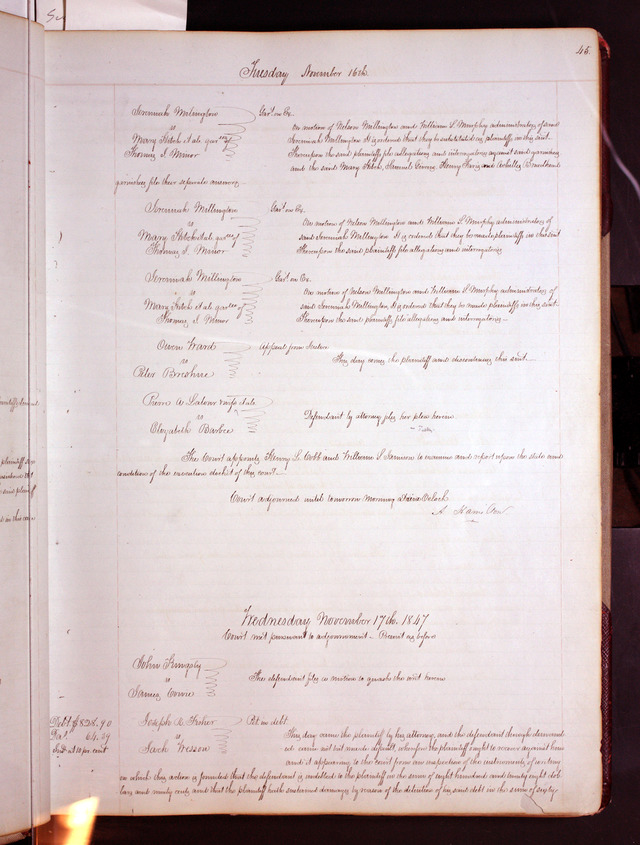 45.
Tuesday November 16th
Jeremiah Millington
vs
Mary Fitch et als
Thomas S. Minor
Gar't on Ex.
On motion of Nelson Millington and William S. Murphy administrators of said
Jeremiah Millington It is ordered that they be substituted as plaintiffs in this suit.
Thereupon the said plaintiffs file allegations and interrogatories against said garnishees
and the said Mary Fitch, Samuel Henry and
garnishees file their separate answers
Jeremiah Millington
vs
Mary Fitch et als
Thomas S. Minor
Gar't on Ex.
On motion of Nelson Millington and William S. Murphy administrators of
said Jeremiah Millington It is ordered that they be made plaintiffs in this suit
Thereupon the said plaintiffs file allegations and interrogatories
Jeremiah Millington
vs
Mary Fitch et als
Thomas S. Minor
Gar't on Ex.
On motion of Nelson Millington and William S. Murphy administrators of
said Jeremiah Millington It is ordered that they be made plaintiffs in this suit.
Thereupon the said plaintiffs file allegations and interrogatories
Owen Ward
vs
Peter
Appeal from Justice
This day comes the plaintiff and discontinues this suit
Pierre A. Labour
vs
Elizabeth Barbee
Defendant by attorney files her plea herein
The Court appoints Henry L. Cobb and William S. to examine and report upon the state and
condition of the execution docket of this court
Court adjourned until tomorrow morning Oclock
A. Hamilton
Wednesday November 17th 1847
Court met pursuant to adjournment Present as before
John Kingsly
vs
James
The defendant files a motion to quash the writ herein
Debt $828.90
Da. 64.29
Int at 10 per cent
Joseph R. Fisher
vs
Zach Wesson
Pet in debt
This day came the plaintiff by his attorney, and the defendant though demand
ed came not but made default, wherefore the plaintiff ought to recover against him
and it appearing to the court from an inspection of the instruments of writing
on which this action is founded that the defendant is indebted to the plaintiff in the sum of eight hundred and twenty eight dol
lars and ninety cents and that the plaintiff hath sustained damages by reason of the detention of his said debt in the sum of sixty